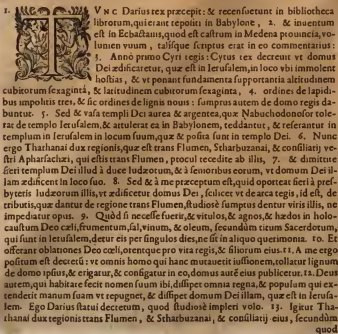 1. TVNC Darius rex præcepit: & recensuerunt in bibliotheca
librorum, qui erant repositi in Babylone, 2. & inuentum
est in Ecbatanis, quod est castrum in Medena prouincia, vo-
lumen vnum, talisque scriptus erat in eo commentarius:
3. Anno primo Cyri regis: Cyrus rex decreuit vt domus
Dei ædificaretur, quæ est in Ierusalem, in loco vbi immolent
hostias, & vt ponant fundamenta supportantia altitudinem
cubitorum sexaginta, & latitudinem cubitorum sexaginta, 4. ordines de lapidi-
bus impolitis tres, & sic ordines de lignis nouis: sumptus autem de domo regis da-
buntur. 5. Sed & vasa templi Dei aurea & argentea, quæ Nabuchodonosor tole-
rat de templo Ierusalem, & attulerat ea in Babylonem, reddantur, & referantur in
templum in Ierusalem in locum suum, quæ & posita sunt in templo Dei. 6. Nunc
ergo Thathanai dux regionis, quæ est trans Flumen, Stharbuzanai, & consiliarij ve-
stri Apharsachæi, qui estis trans Flumen, procul recedite ab illis, 7. & dimittite
fieri templum Dei illud à duce Iudæorum, & à senioribus eorum, vt domum Dei il-
lam ædificent in loco suo. 8. Sed & à me præceptum est, quid oporteat fieri à presby-
byteris Iudæorum illis, vt ædificetur domus Dei, scilicet vt de arca regis, id est, de
tributis, quæ dantur de regione trans Flumen, studiosè sumptus dentur viris illis, ne
impediatur opus. 9. Quòd si necesse fuerit, & vitulos, & agnos, & hædos in holo-
caustum Deo cæli, frumentum, sal, vinum, & oleum, secundùm ritum Sacerdotum,
qui sunt in Ierusalem, detur eis per singulos dies, ne sit in aliquo querimonia. 10. Et
offerant oblationes Deo cæli, orentque pro vita regis, & filiorum eius. 11. A me ergo
positum est decretũ: vt omnis homo qui hanc mutauerit iussionem, tollatur lignum
de domo ipsius, & erigatur, & configatur in eo, domus autē eius publicetur. 12. Deus
autem, qui habitare fecit nomen suum ibi, dissipet omnia regna, & populum qui ex-
tenderit manum suam vt repugnet, & dissipet domum Dei illam, quæ est in Ierusa-
lem. Ego Darius statui decretum, quod studiosè impleri volo. 13. Igitur Tha-
thanai dux regionis trans Flumen, & Stharbuzanai, & consiliarij eius, secundùm
quod